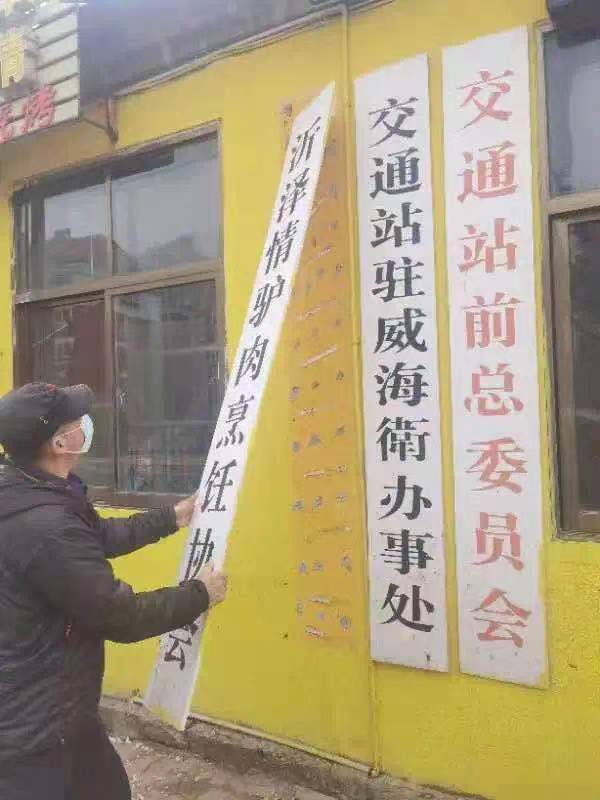 情
烤
沂泽情驴肉烹饪协会
交通站驻威海衛办事处
交通站前总委员会